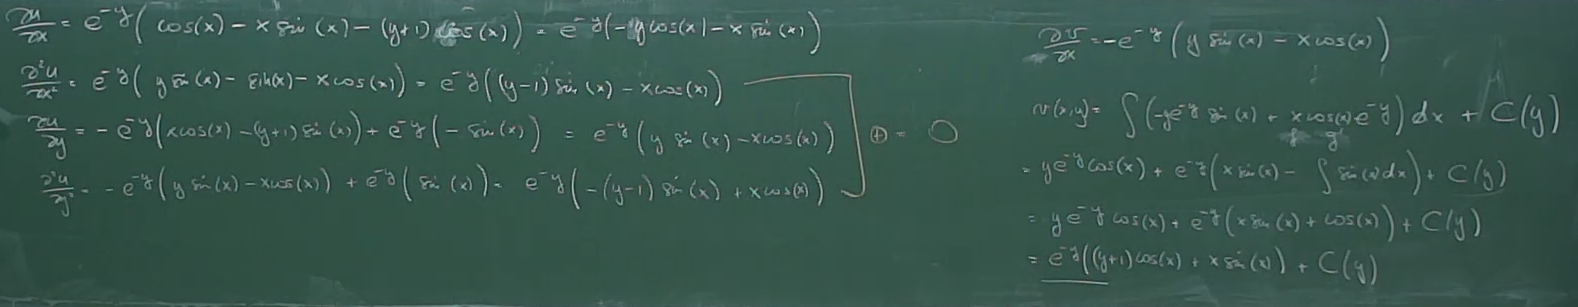 ∂u/∂x = e^{-y}(cos(x) - x sin(x) - (y+1) cos(x)) = e^{-y}(-y cos(x) - x sin(x))
∂²u/∂x² = e^{-y}(y sin(x) - sin(x) - x cos(x)) = e^{-y}((y-1) sin(x) - x cos(x))
∂u/∂y = -e^{-y}(x cos(x) - (y+1) sin(x)) + e^{-y}(-sin(x)) = e^{-y}(y sin(x) - x cos(x))
∂²u/∂y² = -e^{-y}(y sin(x) - x cos(x)) + e^{-y}(sin(x)) = e^{-y}(-(y-1) sin(x) + x cos(x))
⊕ = 0
∂v/∂x = -e^{-y}(y sin(x) - x cos(x))
v(x,y) = ∫(-ye^{-y} sin(x) + x cos(x) e^{-y}) dx + C(y)
f g'
= ye^{-y} cos(x) + e^{-y}(x sin(x) - ∫ sin(x) dx) + C(y)
= ye^{-y} cos(x) + e^{-y}(x sin(x) + cos(x)) + C(y)
= e^{-y}((y+1) cos(x) + x sin(x)) + C(y)